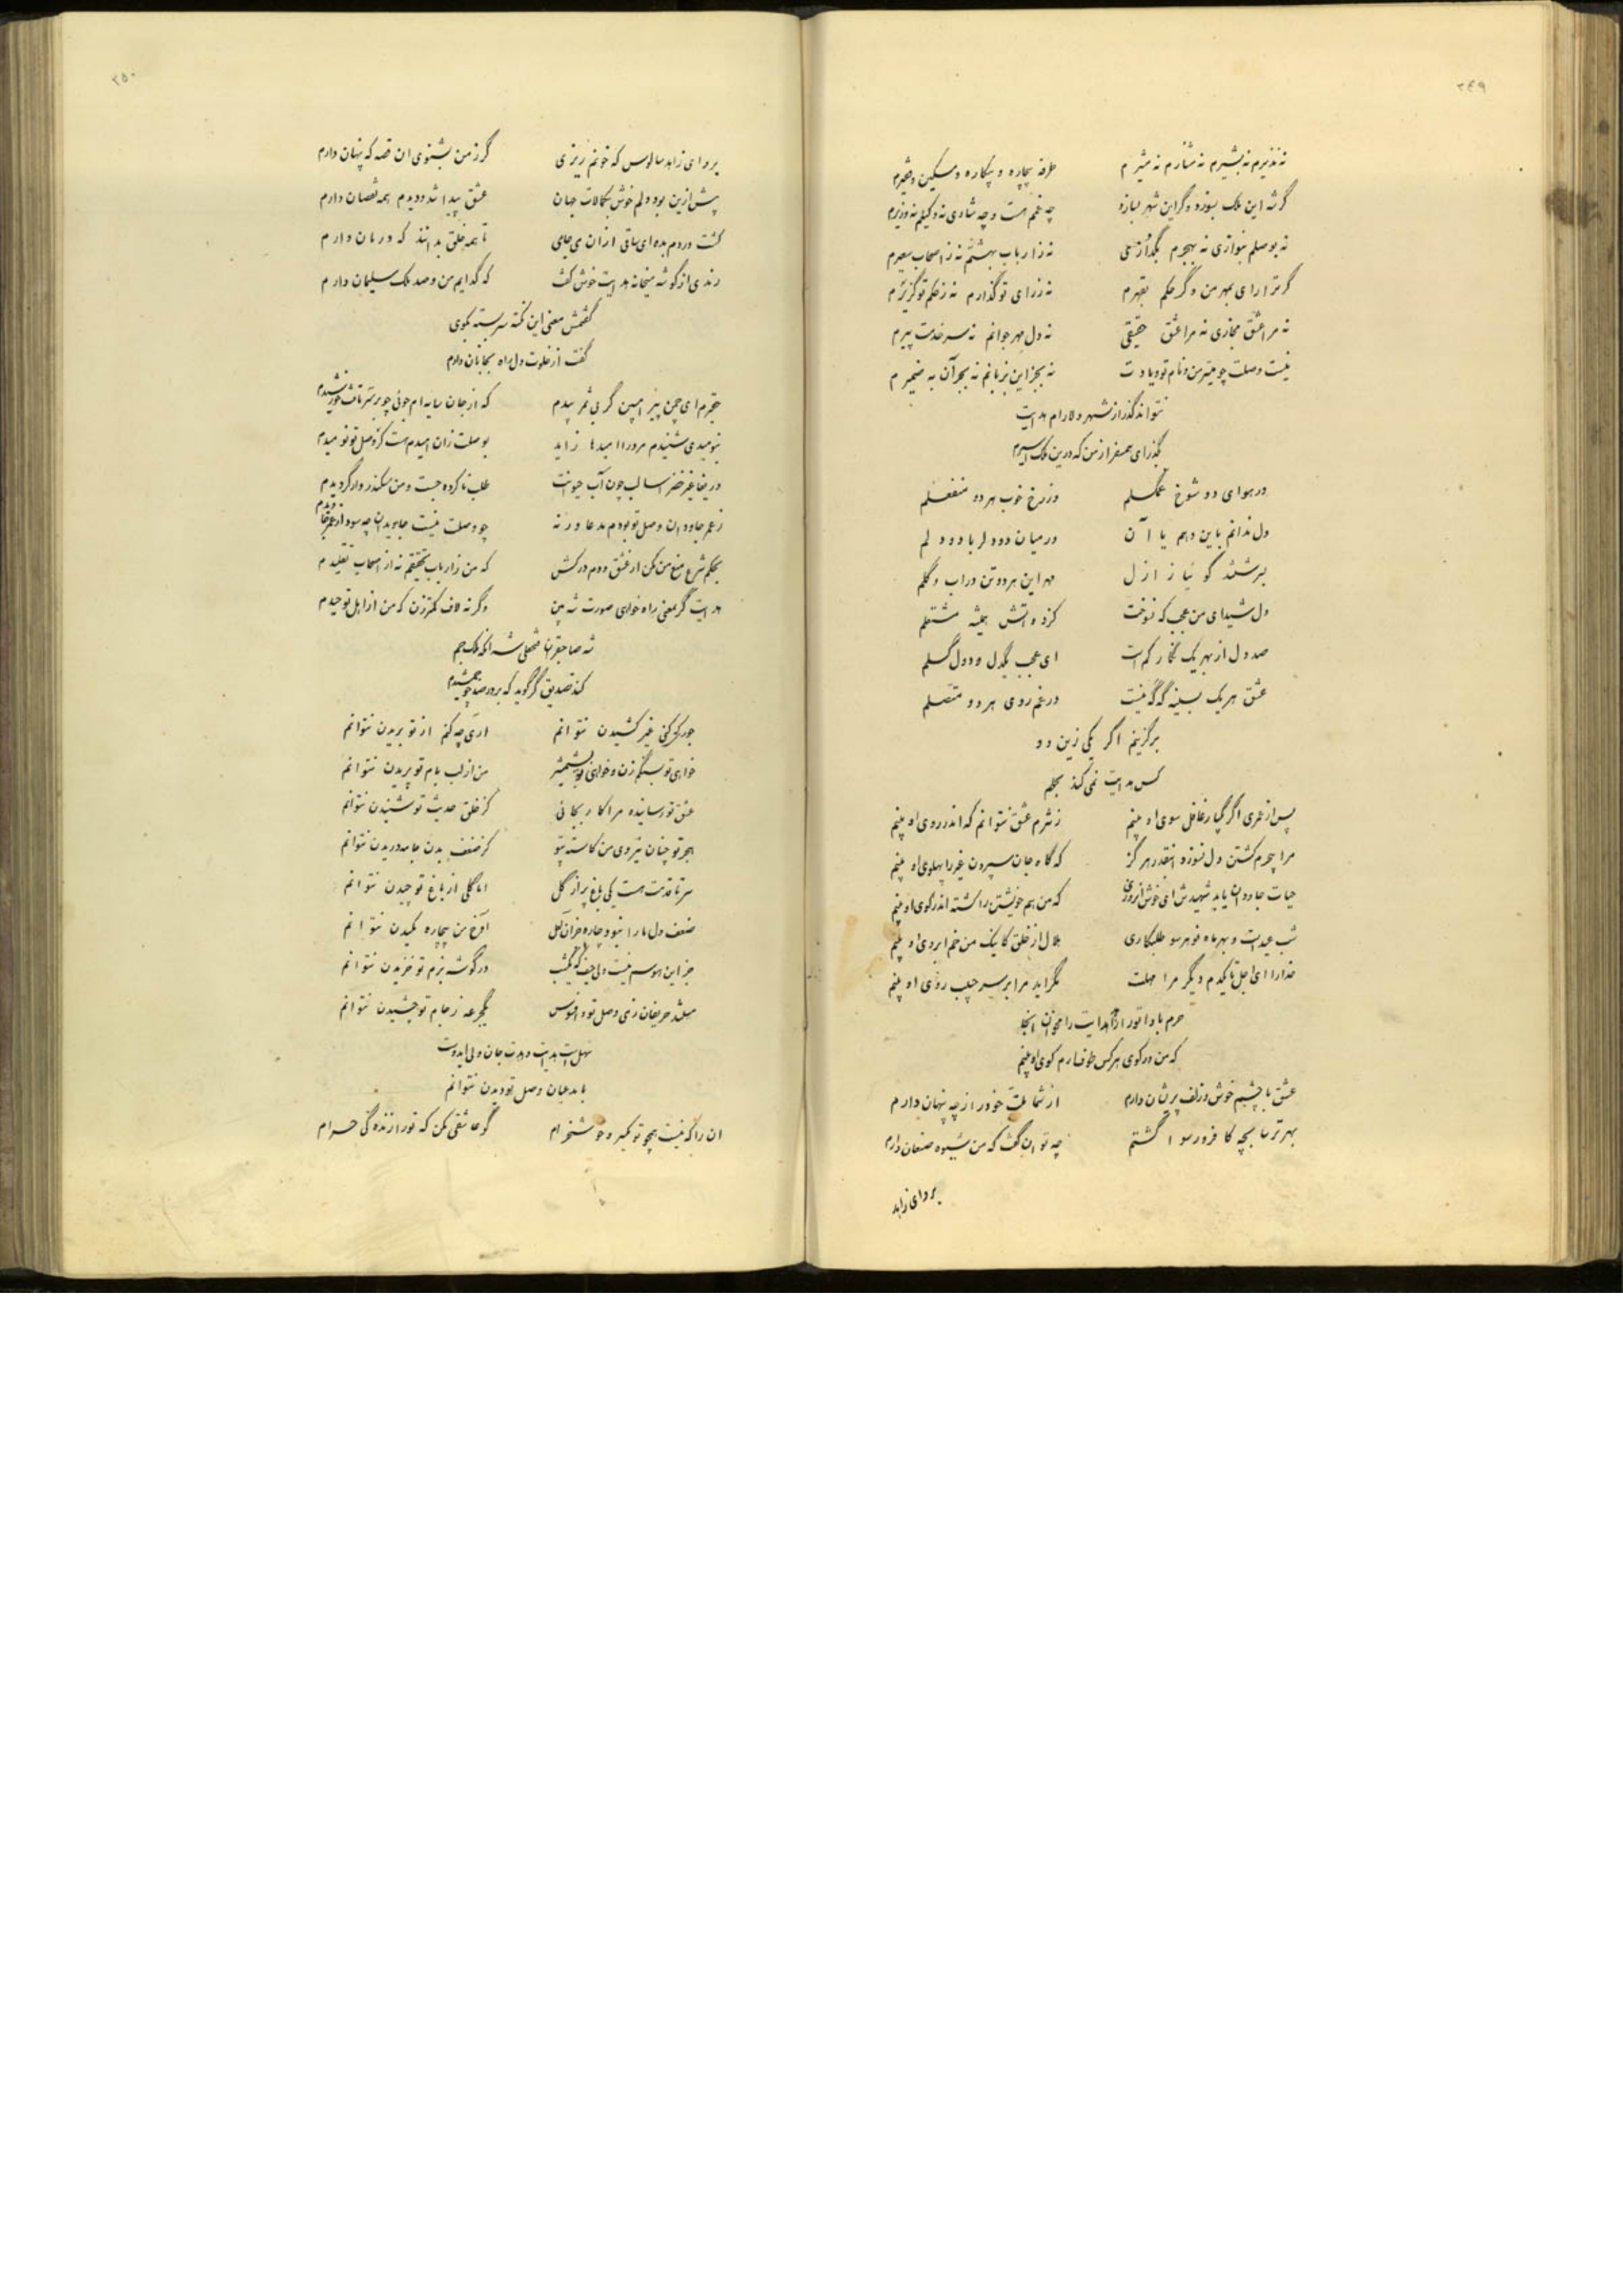 ۳۴۹
نه نذیرم نه بشیرم نه مشارم نه مشیرم طرفه بیچاره و بیکاره و مسکین و فقیرم
گر شه این ملک بسوزد وگر این شهر بسازد چه غمم هست و چه شادی نه وکیلم نه وزیرم
نه بوصلم بنوازی نه بهجرم بگدازی نه ز ارباب بهشتم نه ز اصحاب سعیرم
گر ترا رای بمهر من وگر حکم بقهرم نه ز رای تو گذارم نه ز حکم تو گزیرم
نه مرا عشق مجازی نه مرا عشق حقیقی نه دل مهر جوانم نه سر خدمت پیرم
نیست وصلت چو میسر من و نام تو و یادت نه بجز این بزبانم نه بجز آن به ضمیرم
نتواند گذر از شهر دلارام هدایت
بگذر ای همسفر از من که درین ملک اسیرم
در هوای دو شوخ غمگسلم وز رخ خوب هر دو منفعلم
دل ندانم باین دهم یا آن در میان دو دلربا دو دلم
بسرشتند گویا ز ازل مهر این هر دو تن در آب و گلم
دل شیدای من عجب که نسوخت کز دو آتش همیشه مشتعلم
صد دل از بهر یک نگار کم است ای عجب یکدل و دو دل گسلم
عشق هر یک بسینه گه گه نیست در غم روی هر دو متصلم
برگزینم اگر یکی زین دو
کس هدایت نمی کند بحلم
پس از عمری اگر یکبار غافل سوی او بینم ز شرم عشق نتوانم که اندر روی او بینم
مرا بیجرم کشتن دل نسوزد اینقدر هرگز که گاه جان سپردن غیر را پهلوی او بینم
حیات جاودان یابد شهیدش ای خوش آنروزی که من هم خویشتن را کشته اندر کوی او بینم
شب عید است و بهر ماه نو هر سو طلبکاری هلال از خلق کاینک من خم ابروی او بینم
خدا را ای اجل تا یکدم دیگر مرا مهلت نگر آید مرا بر سر حبیب روی او بینم
حرم بادا تو را هدایت را مخوان آنجا
که من در کوی هر کس طوف آرم کوی او بینم
عشق با چشم خوش و زلف پریشان دارم از شما علت خود را ز چه پنهان دارم
بهر ترسا بچه کافر و رسوا گشتم چه توان گفت که من شیوه صنعان دارم
برو ای زاهد
۳۵۰
برو ای زاهد سالوس که خونم ریزی گر ز من بشنوی آن قصه که پنهان دارم
پیش ازین بود دلم خوش بکمالات جهان عشق پیدا شد و دیدم همه نقصان دارم
کشت دردم بده ای ساقی از آن می جامی تا همه خلق بدانند که درمان دارم
رندی از گوشه میخانه هدایت خوش گفت که گدایم من و صد ملک سلیمان دارم
گفتمش معنی این نکته سربسته بگوی
گفت از خلوت دل راه بجانان دارم
حقیرم ای چمن پیرا مبین گر بی ثمر بیدم که ارجان سایه ام جوئی چو بر سر تافت خورشیدم
نبومیدی شنیدم مر ورا امیدها زاید بوصلت زان امیدم هست کز وصل تو نومیدم
دریغا غیر خضر آسا لب چون آب حیوانت طلب ناکرده جست و من سکندروار گردیدم
ز عمر جاودان وصل تو بودم مدعا ورنه چو وصلت نیست جاویدان چه سود از عمر جاویدم
بحکم شرع منع من مکن از عشق و دم درکش که من ز ارباب تحقیقم نه از اصحاب تقلیدم
هدایت گر بمعنی راه خواهی صورت شه بین وگرنه لاف کمتر زن که من از اهل توحیدم
شه صاحبقران فتحعلی شه آنکه ملک جم
کند تصدیق گر گوید که بر در صد چو جمشیدم
جور کر کنی غیر کشیدن نتوانم آری چه کنم از تو بریدن نتوانم
خواهی تو بسنگم زن و خواهی تو بشمشیر من از لب بام تو پریدن نتوانم
عشق تو رسانیده مرا کار بجائی کز خلق حدیث تو شنیدن نتوانم
هجر تو چنان نیروی من کاسته بیتو کز ضعف بدن جامه دریدن نتوانم
سر تا قدمت هست یکی باغ پر از گل اما گلی از باغ تو چیدن نتوانم
ضعف دل ما را نبود چاره جز آن لعل آوخ من بیچاره مکیدن نتوانم
جز این هوسم نیست ولی حیف که یکشب در گوشه بزم تو خزیدن نتوانم
مستند حریفان ز می وصل تو و افسوس یکجرعه ز جام تو چشیدن نتوانم
سهل است هدایت دهدت جان ولی ایدوست
با مدعیان وصل تو دیدن نتوانم
آن را که نیست همچو تو خوشخرام گو عاشقی مکن که تو را زنده گی حرام